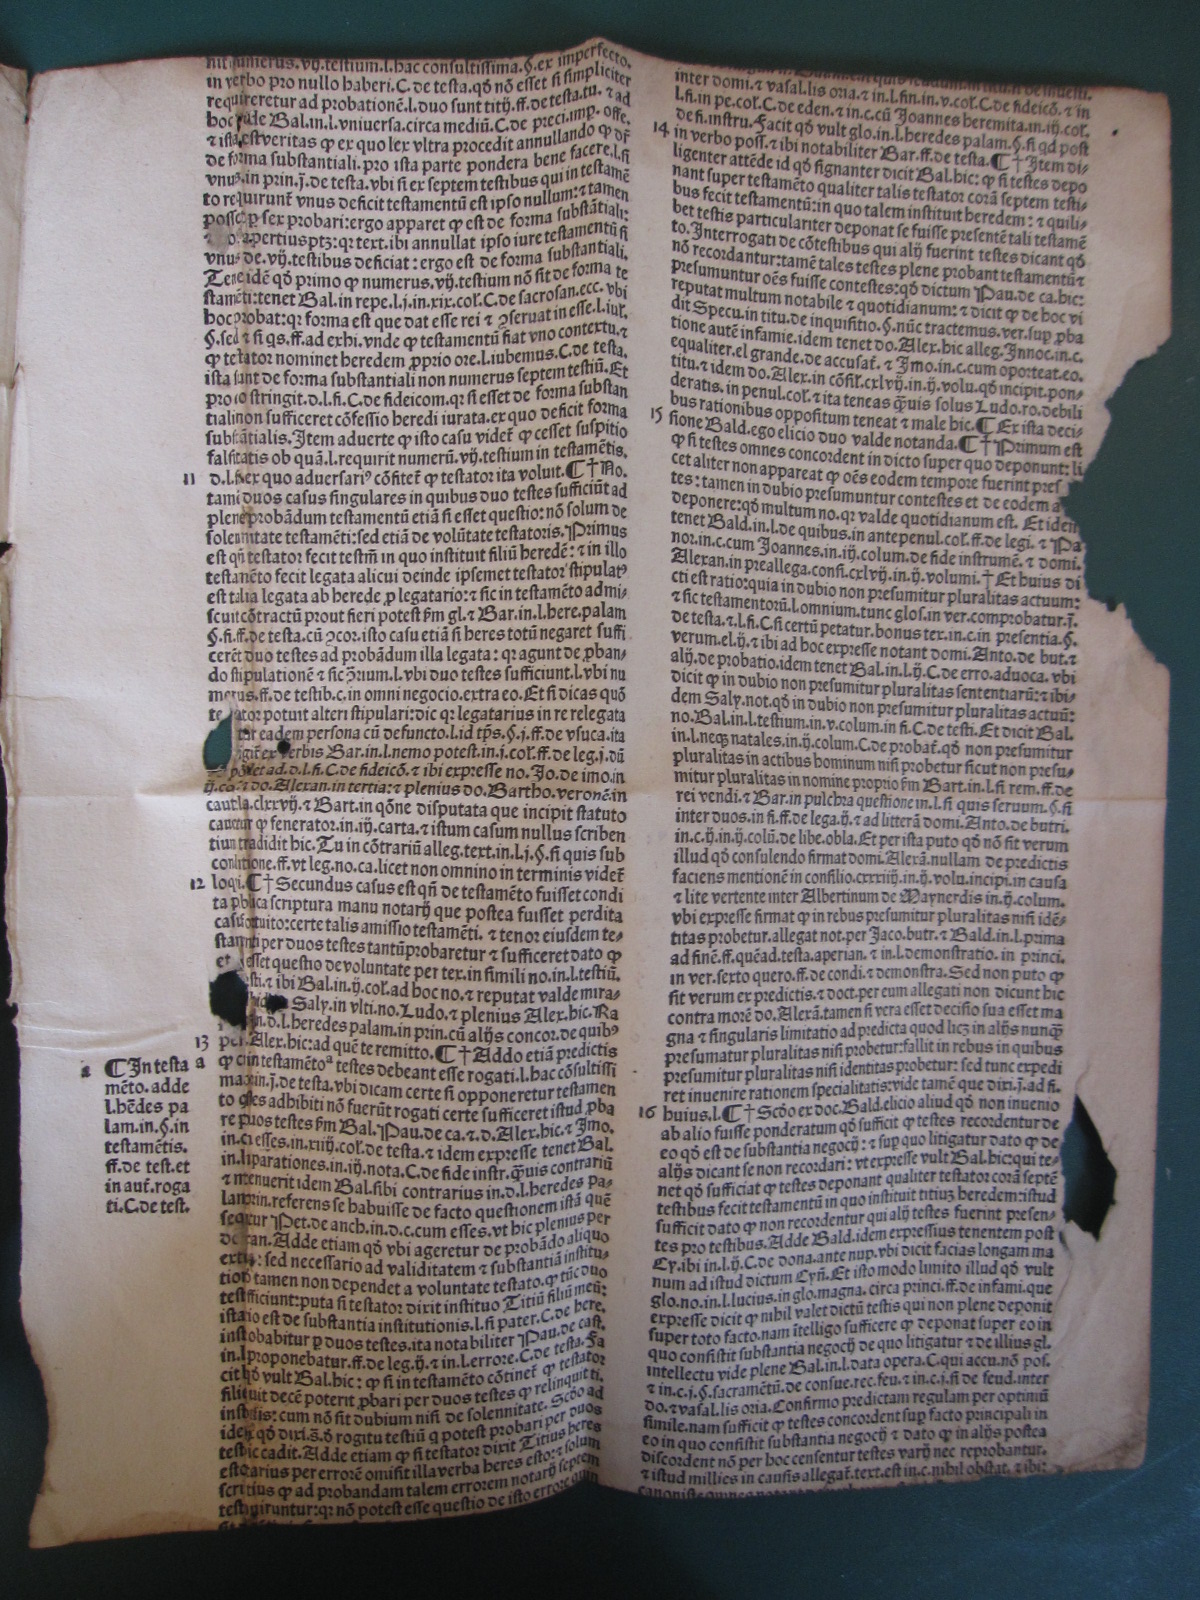 nit numerus.vij.testium.l.hac consultissima.§.ex imperfecto.
in verbo pro nullo haberi.C.de testa.qđ nō esset si simpliciter
requireretur ad probationē.l.duo sunt titij.ff.de testa.tu.⁊ ad
de forma substantiali.pro ista parte pondera bene facere.l.fi
vnus.in prin.j.de testa.vbi si ex septem testibus qui in testamē
to requirunt vnus deficit testamentū est ipso nullum:⁊ tamen
posset ꝑ sex probari:ergo apparet ꝙ est de forma substātiali:
apertius ptz:qr text.ibi annullat ipso iure testamentū si
vnus de.vij.testibus deficiat:ergo est de forma substantiali.
Tene idē qđ primo ꝙ numerus.vij.testium nō sit de forma te
stamēti:tenet Bal.in repe.l.j.in.xix.col.C.de sacrosan.ecc.vbi
hoc probat:qr forma est que dat esse rei ⁊ ꝯseruat in esse.l.iul.
§.sed ⁊ si qs.ff.ad exhi.vnde ꝙ testamentū fiat vno contextu.⁊
ꝙ testator nominet heredem ꝓprio ore.l.iubemus.C.de testa.
ista sunt de forma substantiali non numerus septem testiū.Et
pro  stringit.d.l.fi.C.de fideicom.qr si esset de forma substan
tiali non sufficeret cōfessio heredi iurata.ex quo deficit forma
substātialis.Item aduerte ꝙ isto casu videt ꝙ cesset suspitio
falsitatis ob quā.l.requirit numerū.vij.testium in testamētis.
11 d.l.fi.ex quo aduersariꝰ cōfitet ꝙ testator ita voluit.¶ †No.
tami duos casus singulares in quibus duo testes sufficiūt ad
plene probādum testamentū etiā si esset questio:nō solum de
solennitate testamēti:sed etiā de volūtate testatoris.Primus
est qn̄ testator fecit testm̄ in quo instituit filiū heredē:⁊ in illo
testamēto fecit legata alicui deinde ipsemet testator stipulatꝰ
est talia legata ab herede ꝓ legatario:⁊ sic in testamēto admi/
scuit cōtractū prout fieri potest s̄m gl.⁊ Bar.in.l.here.palam
§.fi.ff.de testa.cū ꝯcor.isto casu etiā si heres totū negaret suffi
cerēt duo testes ad probādum illa legata:qr agunt de ꝓban/
do stipulationē ⁊ sic ꝯ̄rium.l.vbi duo testes sufficiunt.l.vbi nu
merus.ff.de testib.c.in omni negocio.extra eo.Et si dicas quō
testator potuit alteri stipulari:dic qr legatarius in re relegata
eadem persona cū defuncto.l.id tp̄s.§.j.ff.de vsuca.ita
verbis Bar.in.l.nemo potest.in.j.col.ff.de leg.j.dū
ad.d.l.fi.C.de fideicō.⁊ ibi expresse no.Jo.de imo.in
⁊ do.Alexan.in tertia:⁊ plenius do.Bartho.veronē.in
cautla.clxxvij.⁊ Bart.in qōne disputata que incipit statuto
cauetur ꝙ fenerator.in.iij.carta.⁊ istum casum nullus scriben
tium tradidit hic.Tu in cōtrariū alleg.text.in.l.j.§.si quis sub
conditione.ff.vt leg.no.ca.licet non omnino in terminis videt
12 loqi.¶ †Secundus casus est qn̄ de testamēto fuisset condi
ta publica scriptura manu notarij que postea fuisset perdita
casu fortuito:certe talis amissio testamēti.⁊ tenor eiusdem te/
stamēti per duos testes tantū probaretur ⁊ sufficeret dato ꝙ
esset questio de voluntate per tex.in simili no.in.l.testiū.
⁊ ibi Bal.in.ij.col.ad hoc no.⁊ reputat valde mira/
Saly.in vlti.no.Ludo.⁊ plenius Alex.hic.Ra
d.l.heredes palam.in prin.cū alijs concor.de quibꝰ
13 per Alex.hic:ad quē te remitto.¶ †Addo etiā predictis
a ꝙ in testamētoᵃ testes debeant esse rogati.l.hac cōsultissi
ma.in.j.de testa.vbi dicam certe si opponeretur testamen
to testes adhibiti nō fuerūt rogati certe sufficeret istud ꝓba
re ꝑ duos testes s̄m Bal.Pau.de ca.⁊.d.Alex.hic.⁊ Imo.
esses.in.xiij.col.de testa.⁊ idem expresse tenet Bal.
reparationes.in.iij.nota.C.de fide instr.quis contrariū
⁊ tenuerit idem Bal.sibi contrarius in.d.l.heredes pa/
lam.in.referens se habuisse de facto questionem istā quē
sequitur Pet.de anch.in.d.c.cum esses.vt hic plenius per
Adde etiam qđ vbi ageretur de probādo aliquo
sed necessario ad validitatem ⁊ substantiā institu/
tamen non dependet a voluntate testato.ꝙ tūc duo
sufficiunt:puta si testator dixit instituo Titiū filiū meū:
est de substantia institutionis.l.si pater.C.de here.
ꝑ duos testes.ita notabiliter Pau.de cast.
in.l.proponebatur.ff.de leg.ij.⁊ in.l.errore.C.de testa.Fa
cit qđ vult Bal.hic:ꝙ si in testamēto cōtinet ꝙ testator
decē poterit ꝓbari per duos testes ꝙ relinquit ti.
cum nō sit dubium nisi de solennitate.Scđo ad
qđ dixi.s̄.ꝙ rogitu testiū ꝙ potest probari per duos
cadit.Adde etiam ꝙ si testator dixit Titius heres
per errorē omisit illa verba heres esto:⁊ solum
ꝙ ad probandam talem errorem notarij septem
qr nō potest esse questio de isto errore quin
a ¶In testa
mēto.adde
l.hēdes pa
lam.in.§.in
testamētis.
ff.de test.et
in aut.roga
ti.C.de test.
inter domi.⁊ vasal.lis oria.⁊ in.l.fin.in.v.col.C.de fideicō.⁊ in
l.fi.in pe.col.C.de eden.⁊ in.c.cū Joannes heremita.in.iij.col.
de fi.instru.Facit qđ vult glo.in.l.heredes palam.§.si qd post
14 in verbo poss.⁊ ibi notabiliter Bar.ff.de testa.¶ †Item di/
ligenter attēde id qđ signanter dicit Bal.hic:ꝙ si testes depo
nant super testamēto qualiter talis testator corā septem testi/
bus fecit testamentū:in quo talem instituit heredem:⁊ quili/
bet testis particulariter deponat se fuisse presentē tali testamē
to.Interrogati de cōtestibus qui alij fuerint testes dicant qđ
nō recordantur:tamē tales testes plene probant testamentū ⁊
presumuntur oēs fuisse contestes:qđ dictum Pau.de ca.hic:
reputat multum notabile ⁊ quotidianum:⁊ dicit ꝙ de hoc vi
dit Specu.in titu.de inquisitio.§.nūc tractemus.ver.sup ꝓba
tione autē infamie.idem tenet do.Alex.hic alleg.Innoc.in.c.
equaliter.el grande.de accusat.⁊ Imo.in.c.cum oporteat.eo.
titu.⁊ idem do.Alex.in cōsil.cxlvij.in.ij.volu.qđ incipit.pon/
deratis.in penul.col.⁊ ita teneas quis solus Ludo.ro.debili
bus rationibus oppositum teneat ⁊ male hic.¶ Ex ista deci/
15 sione Bald.ego elicio duo valde notanda.¶ †Primum est
ꝙ si testes omnes concordent in dicto super quo deponunt:li
cet aliter non appareat ꝙ oēs eodem tempore fuerint pres
tes:tamen in dubio presumuntur contestes et de eodem a
deponere:qđ multum no.qr valde quotidianum est.Et idem
tenet Bald.in.l.de quibus.in antepenul.col.ff.de legi.⁊ Pa
nor.in.c.cum Joannes.in.iij.colum.de fide instrumē.⁊ domi.
Alexan.in preallega.consi.cxlvij.in.ij.volumi.†Et huius di
cti est ratio:quia in dubio non presumitur pluralitas actuum:
⁊ sic testamentorū.l.omnium.tunc glos.in ver.comprobatur.j.
de testa.⁊.l.fi.C.si certū petatur.bonus tex.in.c.in presentia.§.
verum.el.ij.⁊ ibi ad hoc expresse notant domi.Anto.de but.⁊
alij.de probatio.idem tenet Bal.in.l.ij.C.de erro.aduoca.vbi
dicit ꝙ in dubio non presumitur pluralitas sententiarū:⁊ ibi/
dem Saly.not.qđ in dubio non presumitur pluralitas actuū:
no.Bal.in.l.testium.in.v.colum.in fi.C.de testi.Et dicit Bal.
in.l.neqꝫ natales.in.ij.colum.C.de probat.qđ non presumitur
pluralitas in actibus hominum nisi probetur sicut non presu/
mitur pluralitas in nomine proprio s̄m Bart.in.l.si rem.ff.de
rei vendi.⁊ Bar.in pulchra questione in.l.si quis seruum.§.si
inter duos.in fi.ff.de lega.ij.⁊ ad litterā domi.Anto.de butri.
in.c.ij.in.ij.colū.de libe.obla.Et per ista puto qđ nō sit verum
illud qđ consulendo firmat domi.Alexā.nullam de predictis
faciens mentionē in consilio.cxxxiij.in.ij.volu.incipi.in causa
⁊ lite vertente inter Albertinum de Maynerdis in.ij.colum.
vbi expresse firmat ꝙ in rebus presumitur pluralitas nisi idē/
titas probetur.allegat not.per Jaco.butr.⁊ Bald.in.l.prima
ad finē.ff.quēad.testa.aperian.⁊ in.l.demonstratio.in princi.
in ver.sexto quero.ff.de condi.⁊ demonstra.Sed non puto ꝙ
sit verum ex predictis.⁊ doct.per eum allegati non dicunt hic
contra morē do.Alexā.tamen si vera esset decisio sua esset ma
gna ⁊ singularis limitatio ad predicta quod licꝫ in alijs nunqꝫ
presumatur pluralitas nisi probetur:fallit in rebus in quibus
presumitur pluralitas nisi identitas probetur:sed tunc expedi
ret inuenire rationem specialitatis:vide tamē que dixi.j.ad fi.
16 huius.l.¶ †Scđo ex doc.Bald.elicio aliud qđ non inuenio
ab alio fuisse ponderatum qđ sufficit ꝙ testes recordentur de
eo qđ est de substantia negocij:⁊ sup quo litigatur dato ꝙ de
alijs dicant se non recordari:vt expresse vult Bal.hic:qui te/
net qđ sufficiat ꝙ testes deponant qualiter testator corā septē
testibus fecit testamentū in quo instituit titiuꝫ heredem:istud
sufficit dato ꝙ non recordentur qui alij testes fuerint presen/
tes pro testibus.Adde Bald.idem expressius tenentem post
Cy.ibi in.l.ij.C.de dona.ante nup.vbi dicit facias longam ma
num ad istud dictum Cyn̄.Et isto modo limito illud qđ vult
glo.no.in.l.lucius.in glo.magna.circa princi.ff.de infami.que
expresse dicit ꝙ nihil valet dictū testis qui non plene deponit
super toto facto.nam ītelligo sufficere ꝙ deponat super eo in
quo consistit substantia negocij de quo litigatur ⁊ de illius gl.
intellectu vide plene Bal.in.l.data opera.C.qui accu.nō pos.
⁊ in.c.j.§.sacramētū.de consue.rec.feu.⁊ in.c.j.si de feud.inter
do.⁊ vasal.lis oria.Confirmo predictam regulam per optimū
simile.nam sufficit ꝙ testes concordent sup facto principali in
eo in quo consistit substantia negocij ⁊ dato ꝙ in alijs postea
discordent nō per hoc censentur testes varij nec reprobantur.
⁊ istud millies in causis allegat.text.est in.c.nihil obstat.⁊ ibi: